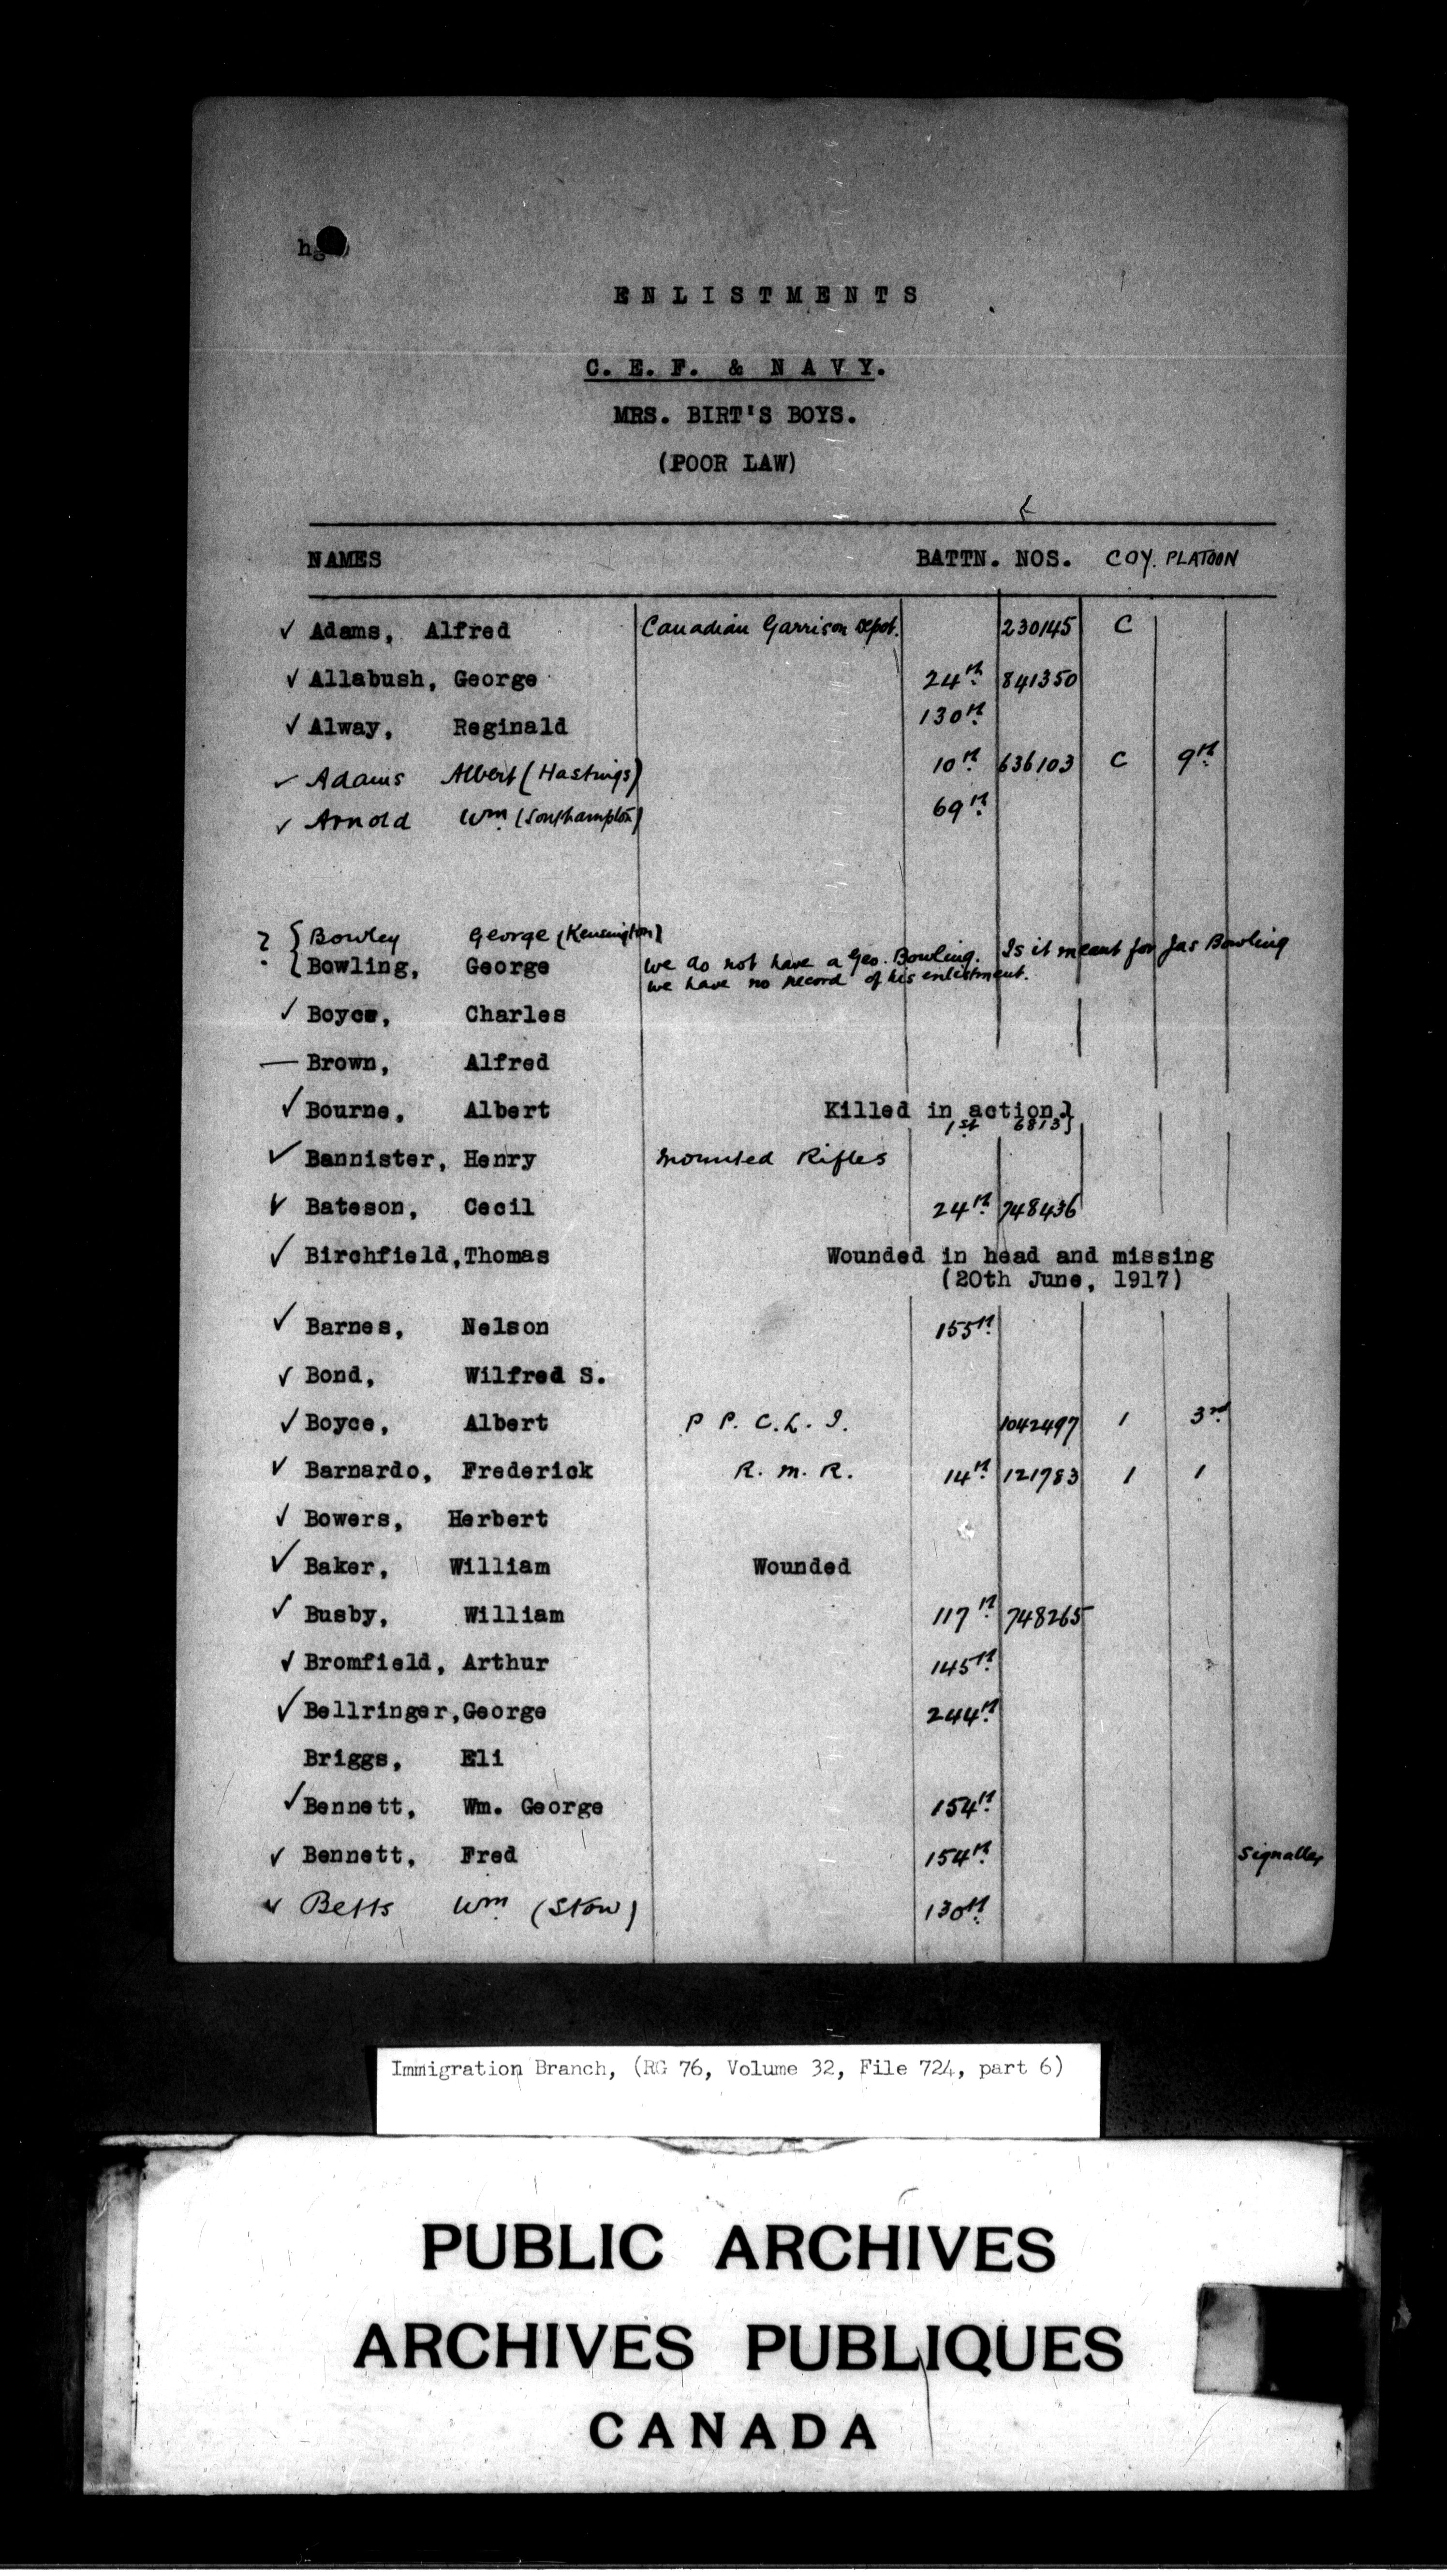 E N L I S T M E N T S
C. E. F. & N A V Y.
MRS. BIRT'S BOYS.
(POOR LAW)
NAMES BATTN. NOS. COY. PLATOON
✓ Adams, Alfred Canadian Garrison Depot. 230145 C
✓ Allabush, George 24th 841350
✓ Alway, Reginald 130th
✓ Adams Albert (Hastings) 10th 636103 C 9th
✓ Arnold Wm (Southampton) 69th
? { Bowley George (Kensington)
{ Bowling, George We do not have a Geo. Bowling. Is it meant for Jas Bowling
we have no record of his enlistment.
✓ Boyce, Charles
— Brown, Alfred
✓ Bourne, Albert Killed in action.}
1st 6813}
✓ Bannister, Henry Mounted Rifles
✓ Bateson, Cecil 24th 748436
✓ Birchfield, Thomas Wounded in head and missing
(20th June, 1917)
✓ Barnes, Nelson 155th
✓ Bond, Wilfred S.
✓ Boyce, Albert P P. C. L. I. 1042497 1 3rd
✓ Barnardo, Frederick R. M. R. 14th 121783 1 1
✓ Bowers, Herbert
✓ Baker, William Wounded
✓ Busby, William 117th 748265
✓ Bromfield, Arthur 145th
✓ Bellringer, George 244th
Briggs, Eli
✓ Bennett, Wm. George 154th
✓ Bennett, Fred 154th Signaller
✓ Betts Wm (Stow) 130th
Immigration Branch, (RG 76, Volume 32, File 724, part 6)
PUBLIC ARCHIVES
ARCHIVES PUBLIQUES
CANADA